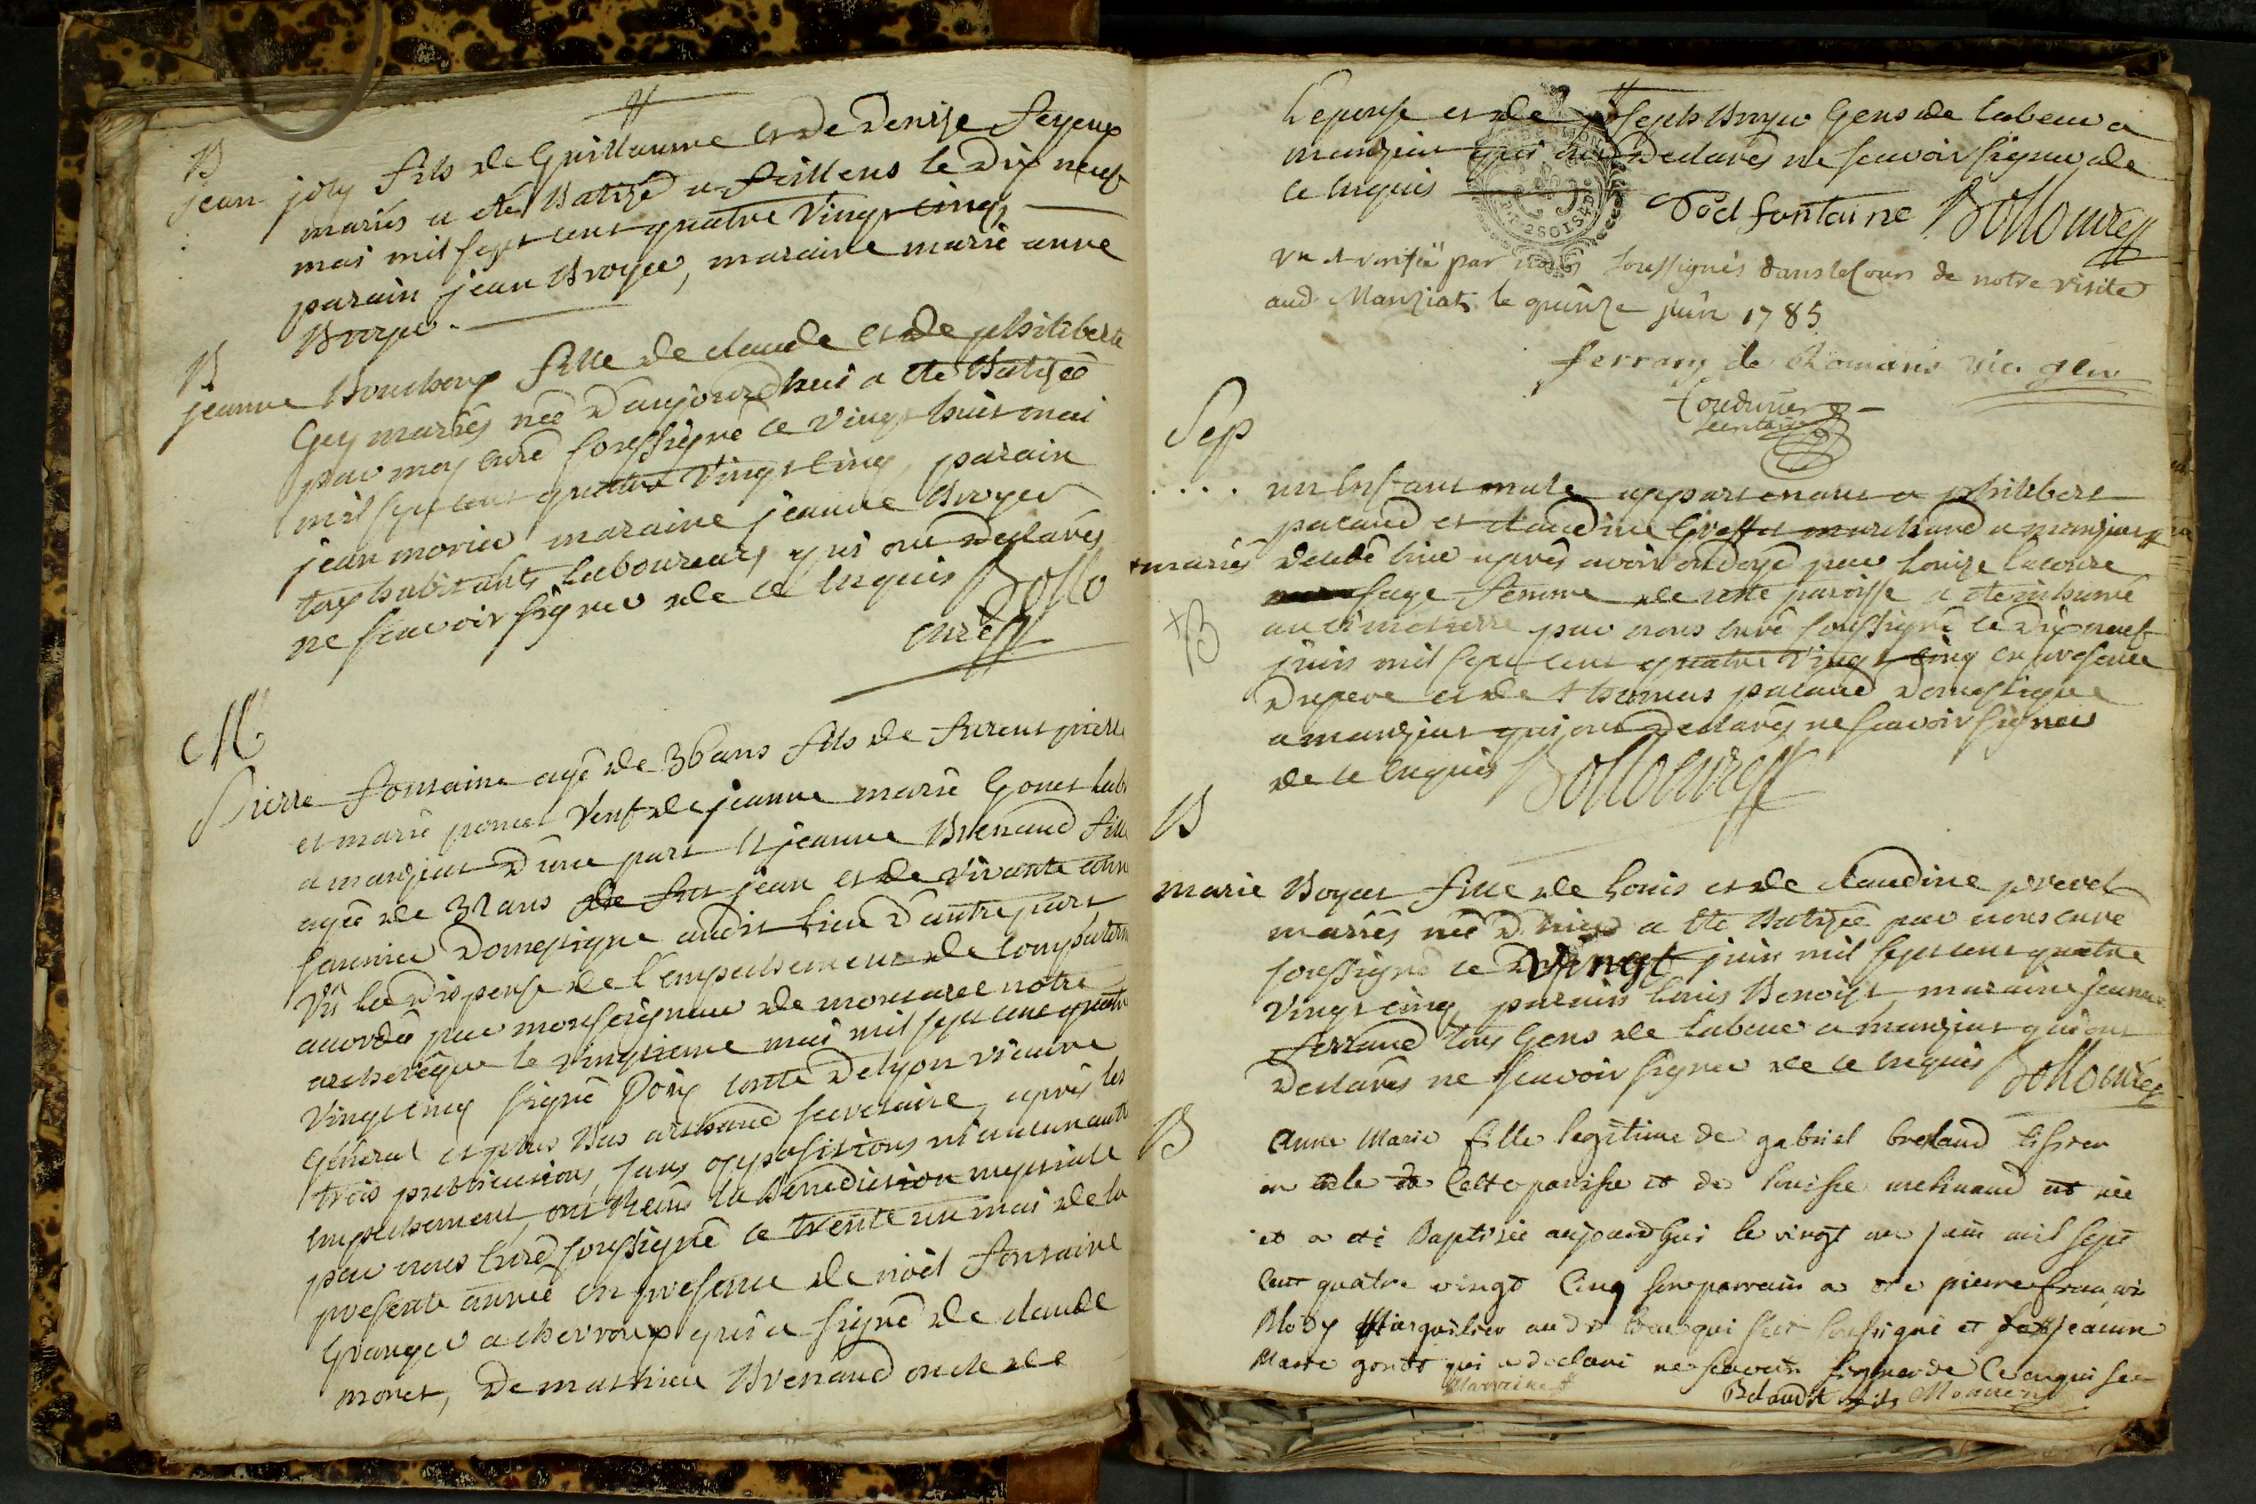 B
jean joly fils de Guillaume et de Denise feyeux
mariés a eté Batizé a feillens le dix neuf
mai mil sept cent quatre vingt cinq
parain jean Broyer, maraine marie anne
Broyer.
B
jeanne Bouchoux fille de claude et de philiberte
Guy mariés née d'aujourdhuis a eté Batizée
par moy curé soussigné ce vingt huit mai
mil sept cent quatre vingt cinq, parain
jean morier maraine jeanne Broyer
tous habitants laboureurs qui ont declarés
ne scavoir signer de ce enquis Bollo
curé
M
Pierre fontaine agé de 36 ans fils de furent pierre
et marie poncet veuf de jeanne marie Gonet lab
a manziat d'une part et jeanne Brenaud fille
agée de 32 ans de fut jean et de vivante anne
saunier domestique audit lieu d'autre part
Vû la dispense de l'empechement de compaternité
accordée par monseigneur de montazet notre
archevêque le vingtieme mai mil sept cent quatre
vingt cinq signé Poix comte de lyon vicaire
général et plus bas archand secretaire, après les
trois publications, sans oppositions ni aucun autre
empechement, ont recûs la Benediction nuptiale
par nous curé soussigné ce trente un mai de la
presente année en presence de noël fontaine
Granger a chevroux qui a signé de claude
monet, de mathieu Brenaud oncle de
L'epouse et de joseph Broyer Gens de labeur a
manziat qui ont declarés ne scavoir signer de
ce enquis
Noel fontaine Bollo curé
vu et verifié par nous soussignés dans le Cours de notre visite
aud Manziat, le quinze juin 1785
ferrary de Romans vic. gen
Coudurier
secretaire
Sep
un enfant male appartenant a philibert
pacaud et claudine Greffet marchand a manziat
+ mariés decedé hier après avoir ondoyé par Louize lacouze
sage femme de cette paroisse a eté inhumé
au cimetierre par nous curé soussigné ce dix neuf
juin mil sept cent quatre vingt cinq en presence
du pere et de thomas pacaud domestique
a manziat qui ont declarés ne scavoir signer
de ce enquis Bollo curé
+B
B
marie Boyat fille de Louis et de claudine prevel
mariés née d'hier a eté Batizée par nous curé
soussigné ce vingt juin mil sept cent quatre
vingt cinq, parain Louis Benoist, maraine jeanne
ferraud tous Gens de labeur a manziat qui ont
declarés ne scavoir signer de ce enquis Bollo curé
B
anne Marie fille legitime de gabriel breland tisseur
en toile de Cette paroisse et de louise melinand née
et a eté Baptisée aujourdhui le vingt un juin mil sept
cent quatre vingt Cinq son parrain a ete pierre françois
Mody Marguilier audit lieu qui s'est soussigné et jeanne
Marie gonet qui a declaré ne scavoir signer de Ce enquise
Marraine